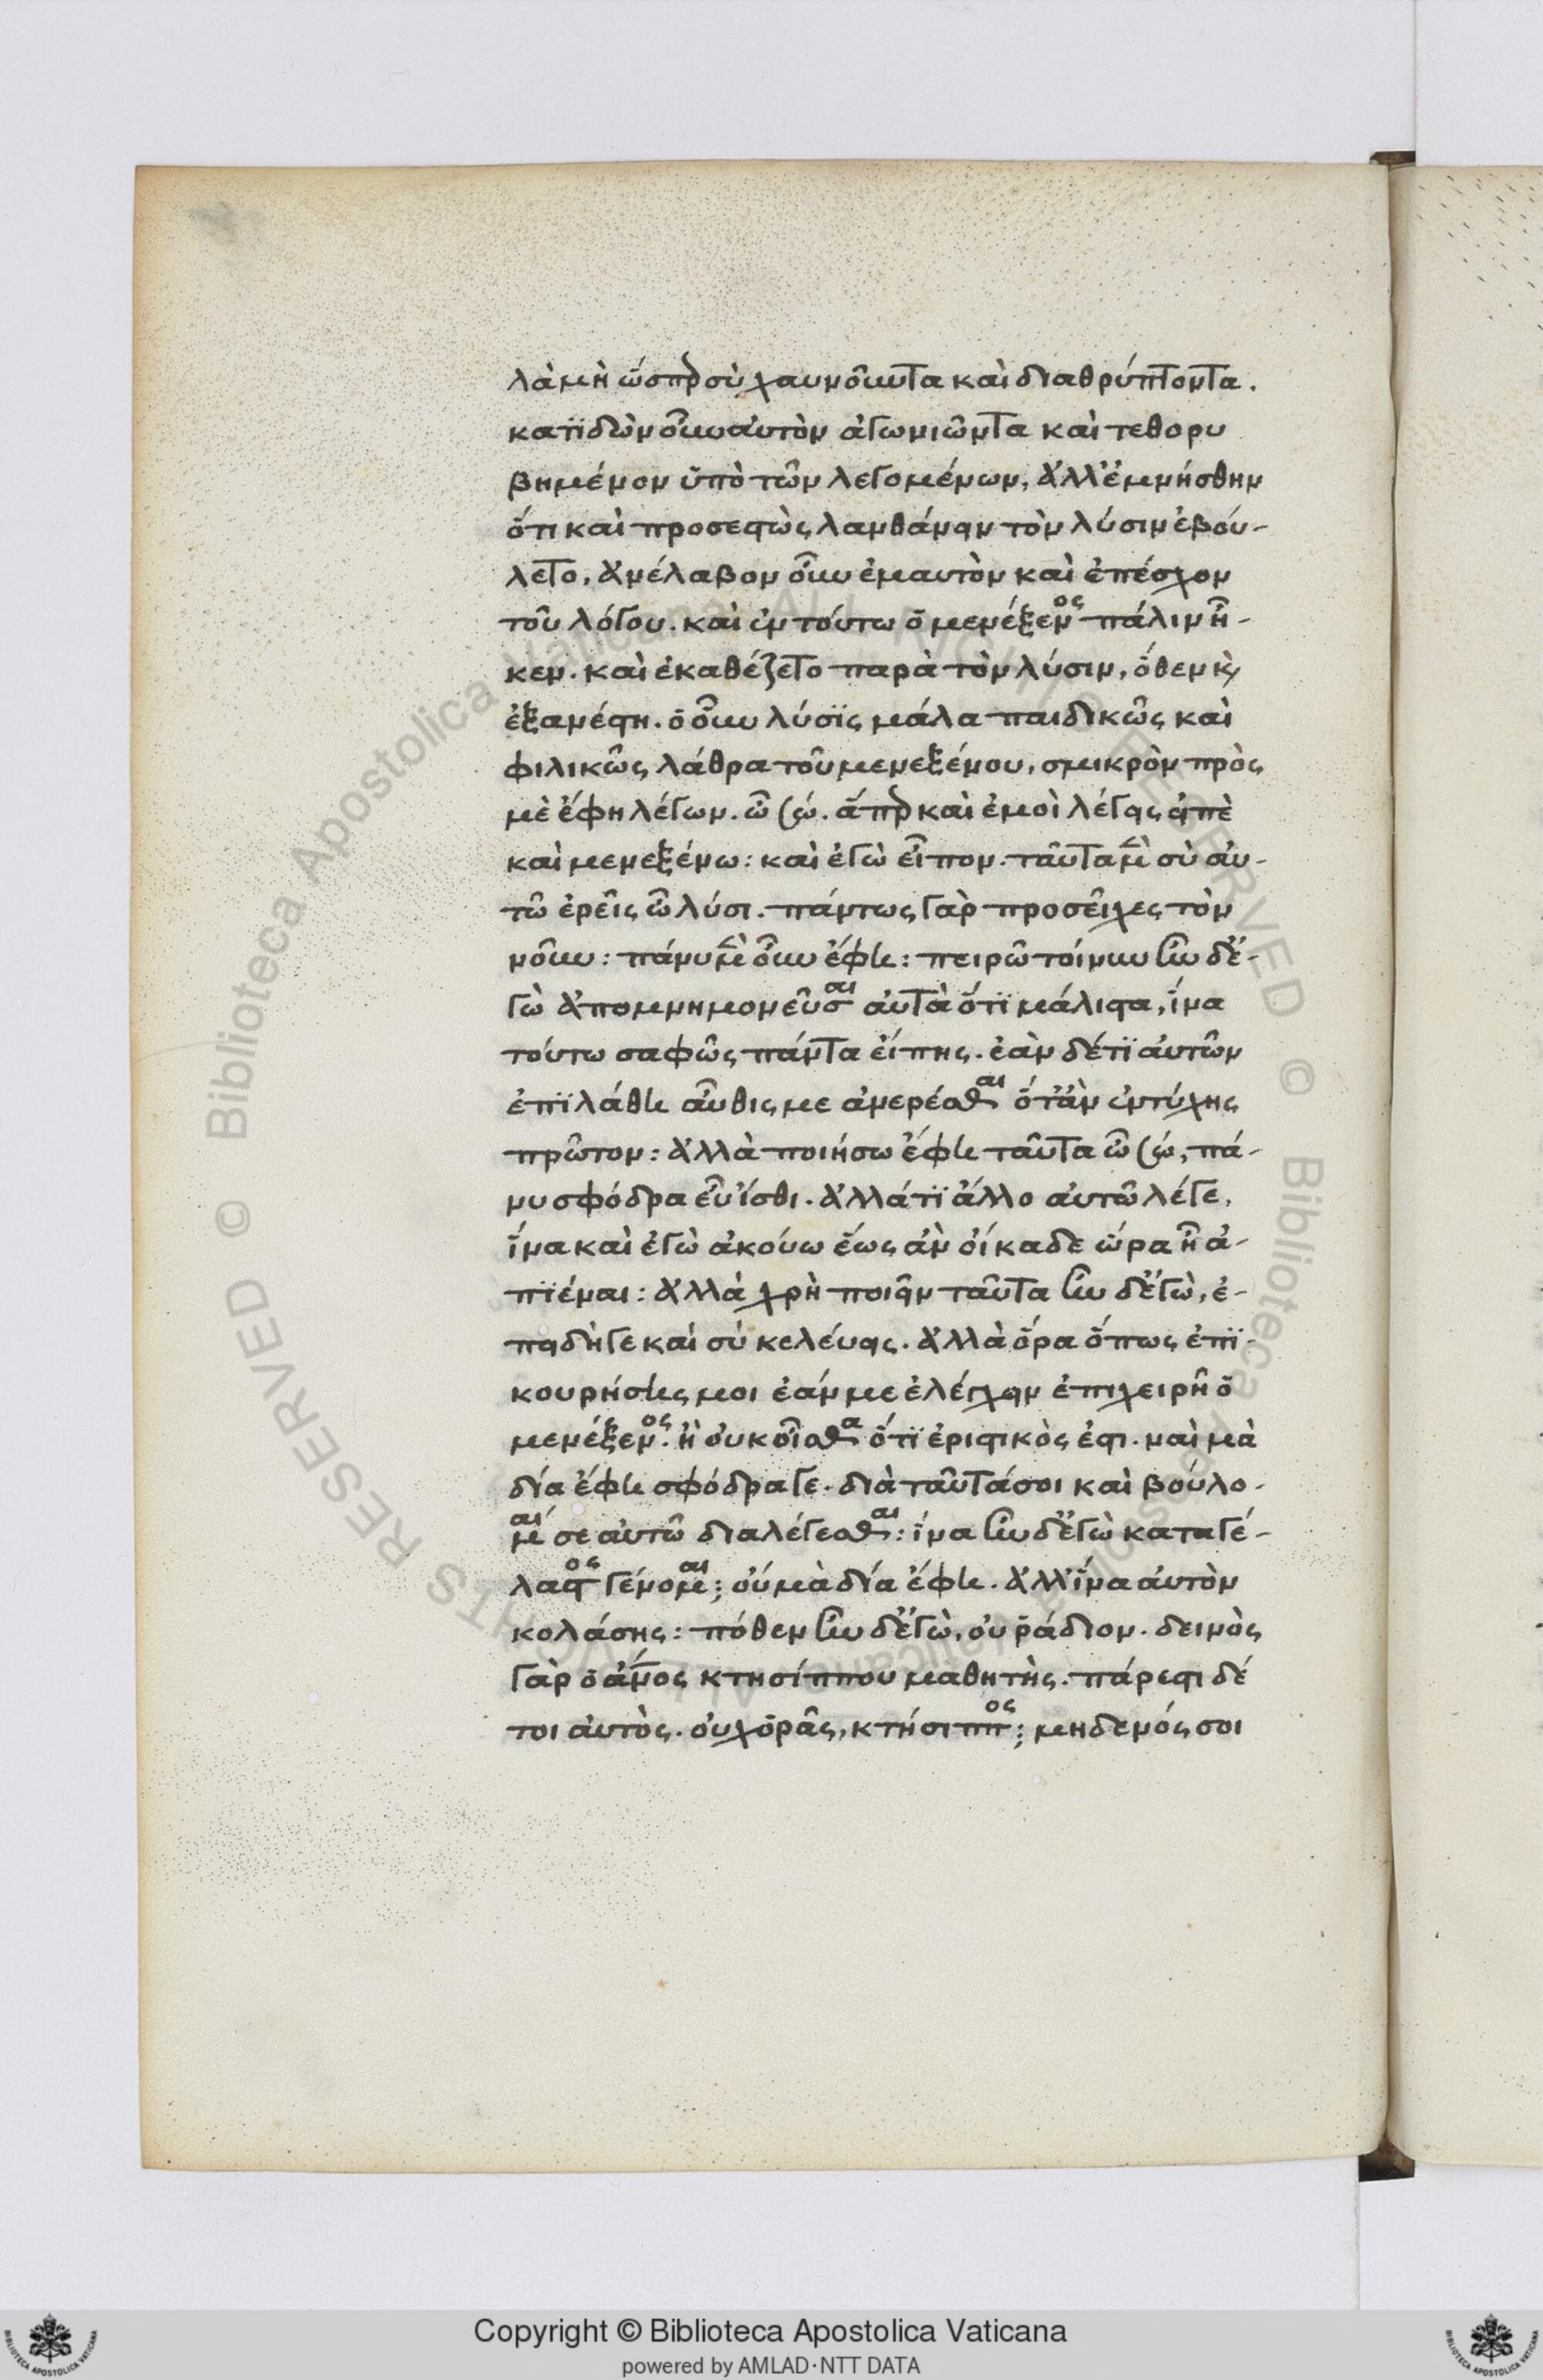 λὰ μὴ ὥσπερ σὺ χαυνοῦντα καὶ διαθρύπτοντα.
κατϊδὼν οὖν αὐτὸν ἀγωνιῶντα καὶ τεθορυ
βημένον ὑπὸ τῶν λεγομένων, ἀλλ' ἐμνήσθην
ὅτι καὶ προσεστὼς λανθάνειν τὸν λύσιν ἐβού-
λετο, ἀνέλαβον οὖν ἐμαυτὸν καὶ ἐπέσχον
τοῦ λόγου. καὶ ἐν τούτω ὁ μενέξενος πάλιν ἧ-
κεν. καὶ ἐκαθέζετο παρὰ τὸν λύσιν, ὅθεν κ̀
ἐξανέστη. ὁ οὖν λύσϊς μάλα παιδικῶς καὶ
φιλικῶς λάθρα τοῦ μενεξένου, σμικρὸν πρὸς
μὲ ἔφη λέγων. ὦ σώ. ἅπερ καὶ ἐμοὶ λέγεις εἰπὲ
καὶ μενεξένω: καὶ ἐγὼ εἶπον. ταῦτα μὲν σὺ αὐ-
τῶ ἐρεῖς ὦ λύσι. πάντως γὰρ προσεῖχες τὸν
νοῦν: πάνυ μὲν οὖν ἔφη: πειρῶ τοίνυν ἦν δ' ἐ-
γὼ ἀπομνημονεῦσαι αὐτὰ ὅτϊ μάλιστα, ἵνα
τούτω σαφῶς πάντα εἴπης. ἐὰν δέ τϊ αὐτῶν
ἐπϊλάθη αὖθις με ἀνερέσθαι ὅτἂν ἐντύχης
πρῶτον: ἀλλὰ ποιήσω ἔφη ταῦτα ὦ σώ, πά-
νυ σφόδρα εὖ ἴσθι. ἀλλά τϊ ἄλλο αὐτῶ λέγε,
ἵνα καὶ ἐγὼ ἀκούω ἕως ἀν οἴκαδε ὥρα ἦ ἀ-
πϊέναι: ἀλλὰ χρὴ ποιεῖν ταῦτα ἦν δ' ἐγὼ, ἐ-
πειδή γε καὶ σὺ κελεύεις. ἀλλὰ ὅρα ὅπως ἐπϊ-
κουρήσης μοι ἐάν με ἐλέγχειν ἐπιχειρῆ ὁ
μενέξενος. ἢ οὐκ οἶσθα ὅτϊ ἐριστικὸς ἐστι. ναὶ μὰ
δία ἔφη σφόδρα γε. διὰ ταῦτά σοι καὶ βούλο-
μαί σε αὐτῶ διαλέγεσθαι: ἵνα ἦν δ' ἐγὼ καταγέ-
λαστος γένομαι; οὐ μὰ δία ἔφη. ἀλλ' ἵνα αὐτὸν
κολάσης: πόθεν ἦν δ' ἐγὼ, οὐ ῥάδιον. δεινὸς
γὰρ ὁ ἄνος κτησίππου μαθητὴς. πάρεστι δέ
τοι αὐτὸς. οὐχ ὁρᾶς, κτήσιππος; μηδενός σοι
Copyright © Biblioteca Apostolica Vaticana
powered by AMLAD·NTT DATA